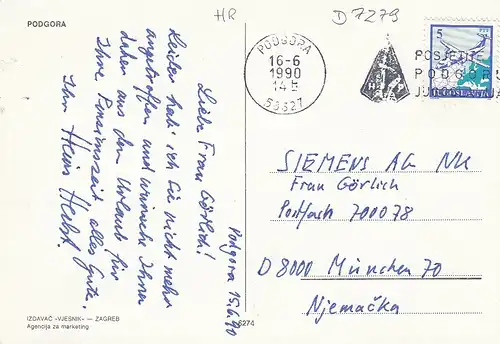 PODGORA
HR
D7279
PODGORA
16-6
1990
14
POSJETITE
PODGORU
5
PTT
JUGOSLAVIJA
Podgora 15.6.90
Liebe Frau Görlich!
Leider hab' ich Sie nicht mehr
angetroffen und wünsche Ihnen
daher aus dem Urlaub für
Ihre Pensionszeit alles Gute.
Ihr Heinz Herbst.
SIEMENS AG
Frau Görlich
Postfach 700078
D 8000 München 70
Njemačka
IZDAVAČ «VJESNIK» — ZAGREB
Agencija za marketing
6274